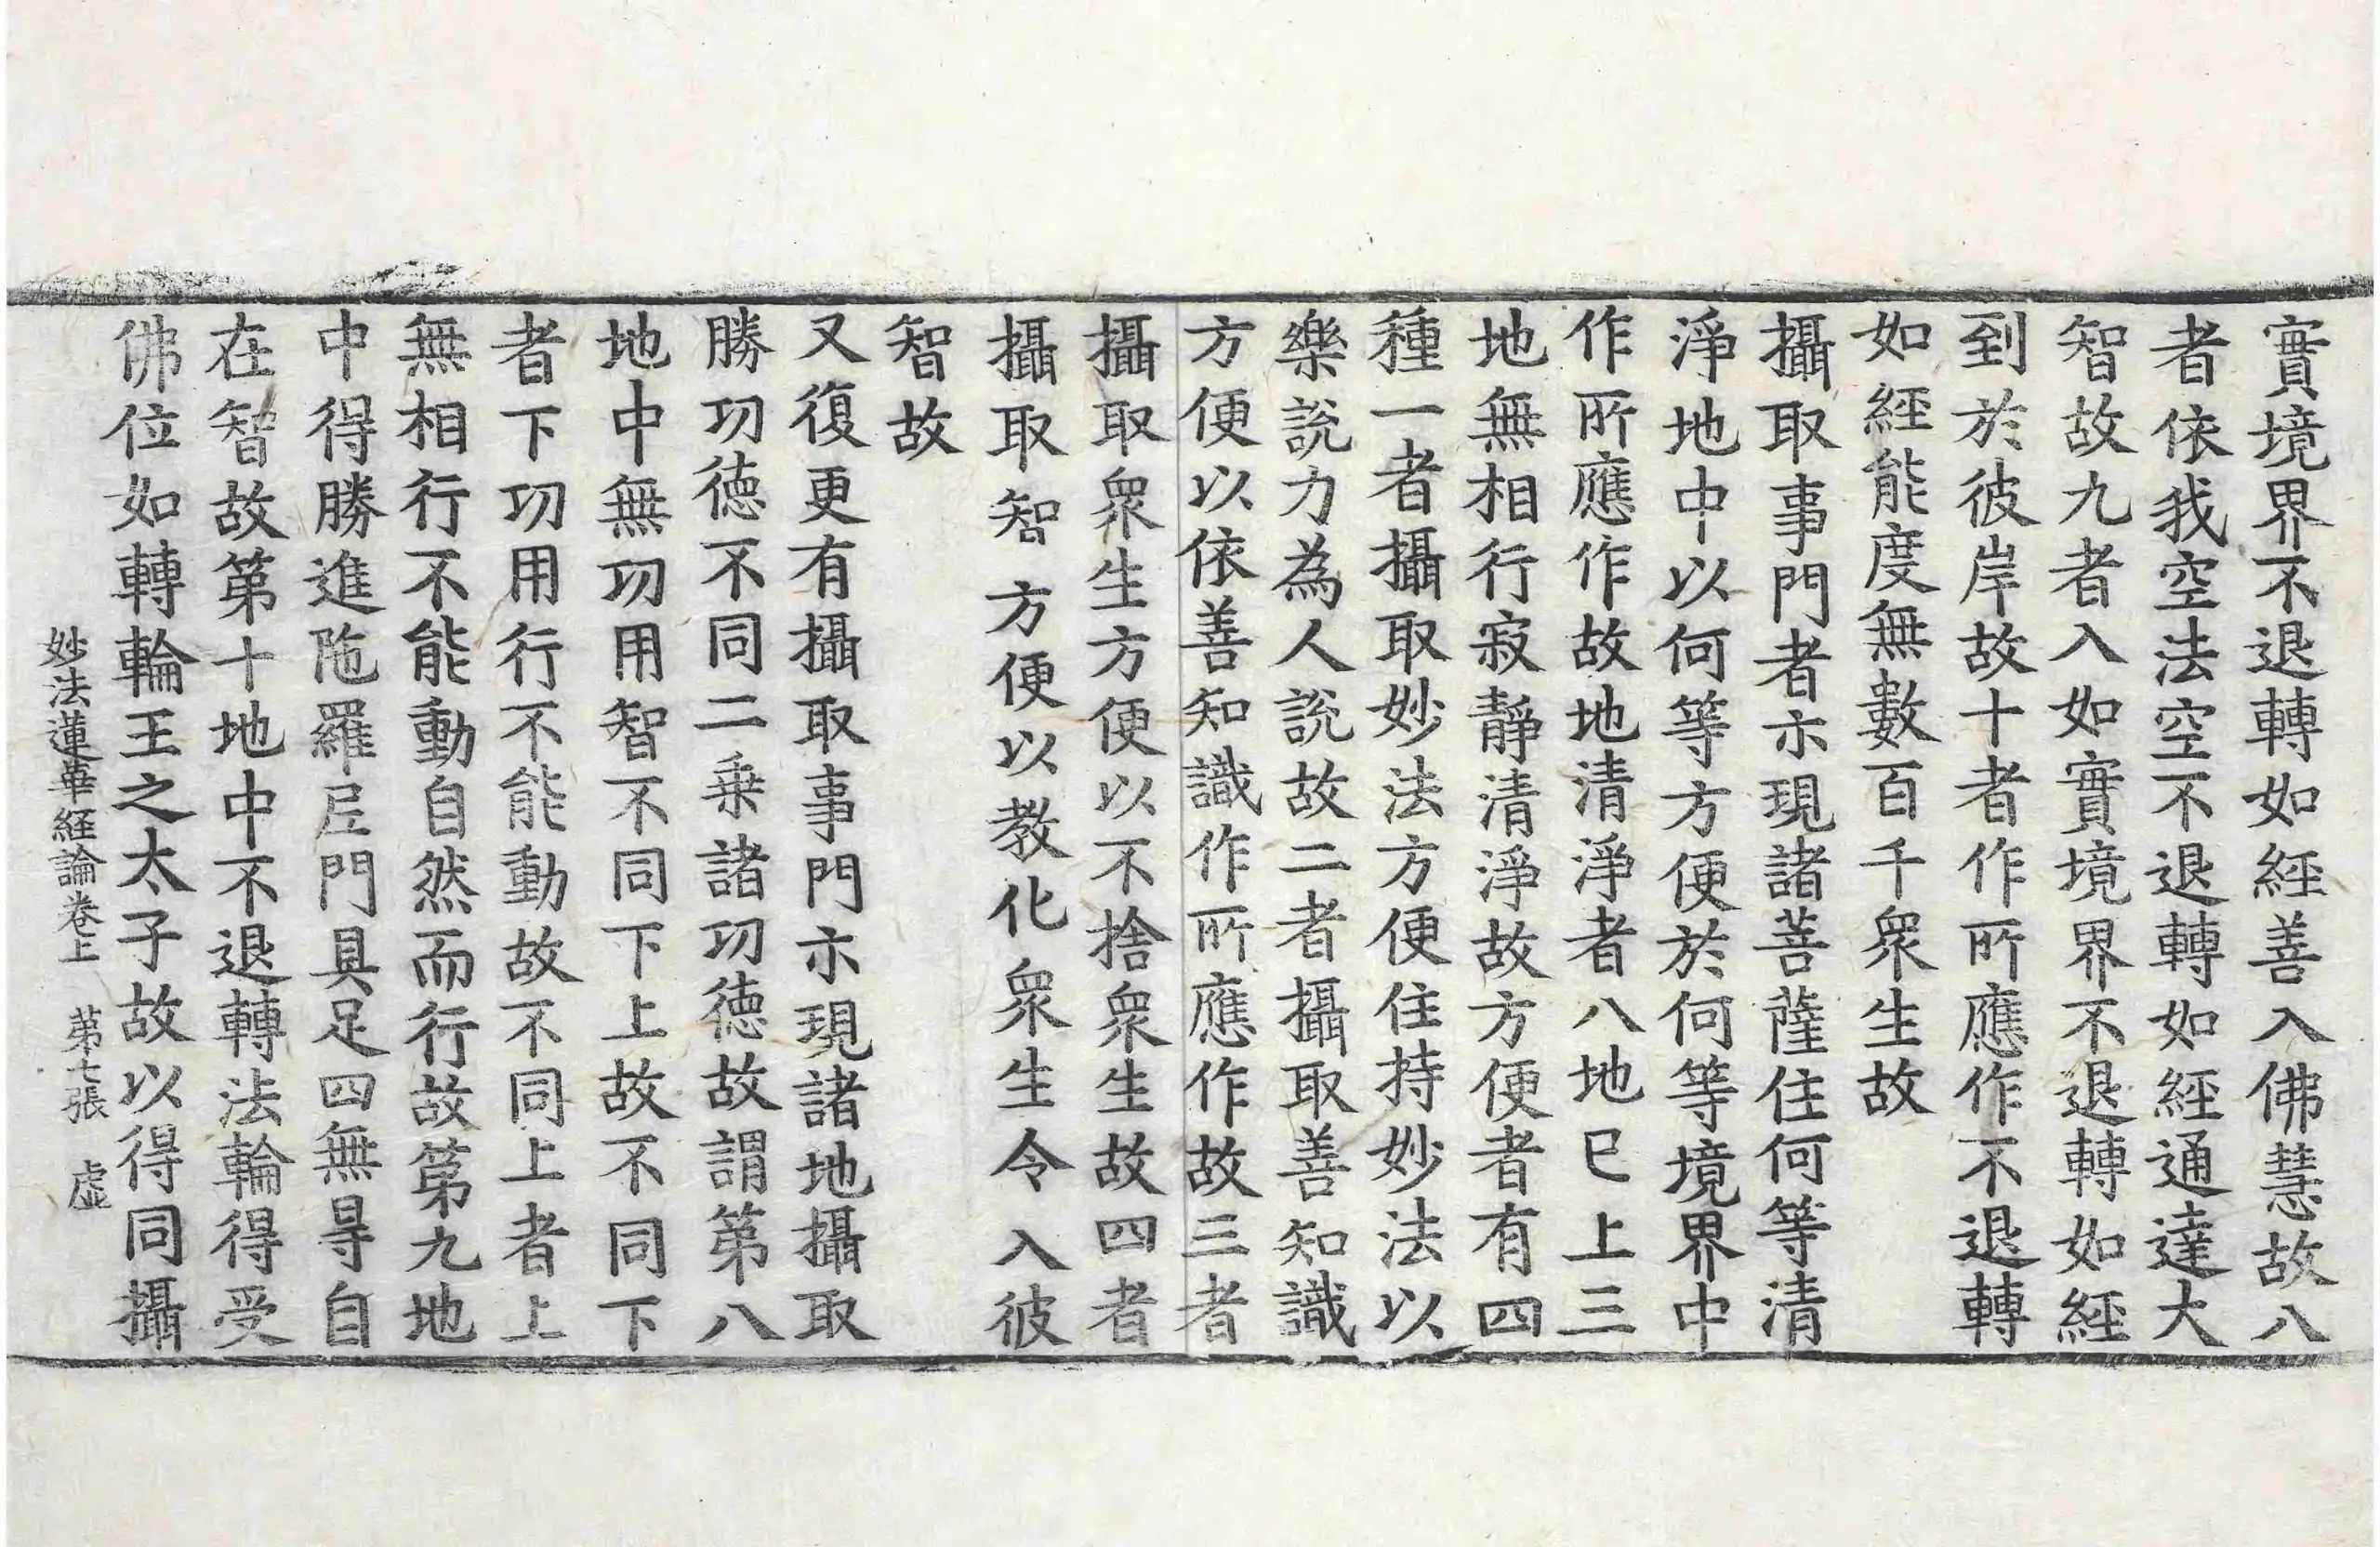 實境界不退轉如經善入佛慧故八
者依我空法空不退轉如經通達大
智故九者入如實境界不退轉如經
到於彼岸故十者作所應作不退轉
如經能度無數百千衆生故
攝取事門者示現諸菩薩住何等清
淨地中以何等方便於何等境界中
作所應作故地清淨者八地已上三
地無相行寂靜清淨故方便者有四
種一者攝取妙法方便住持妙法以
樂說力為人說故二者攝取善知識
方便以依善知識作所應作故三者
攝取衆生方便以不捨衆生故四者
攝取智方便以教化衆生令入彼
智故
又復更有攝取事門示現諸地攝取
勝功德不同二乗諸功德故謂第八
地中無功用智不同下上故不同下
者下功用行不能動故不同上者上
無相行不能動自然而行故第九地
中得勝進陁羅尼門具足四無㝵自
在智故第十地中不退轉法輪得受
佛位如轉輪王之太子故以得同攝
妙法蓮華經論卷上　第七張　虛